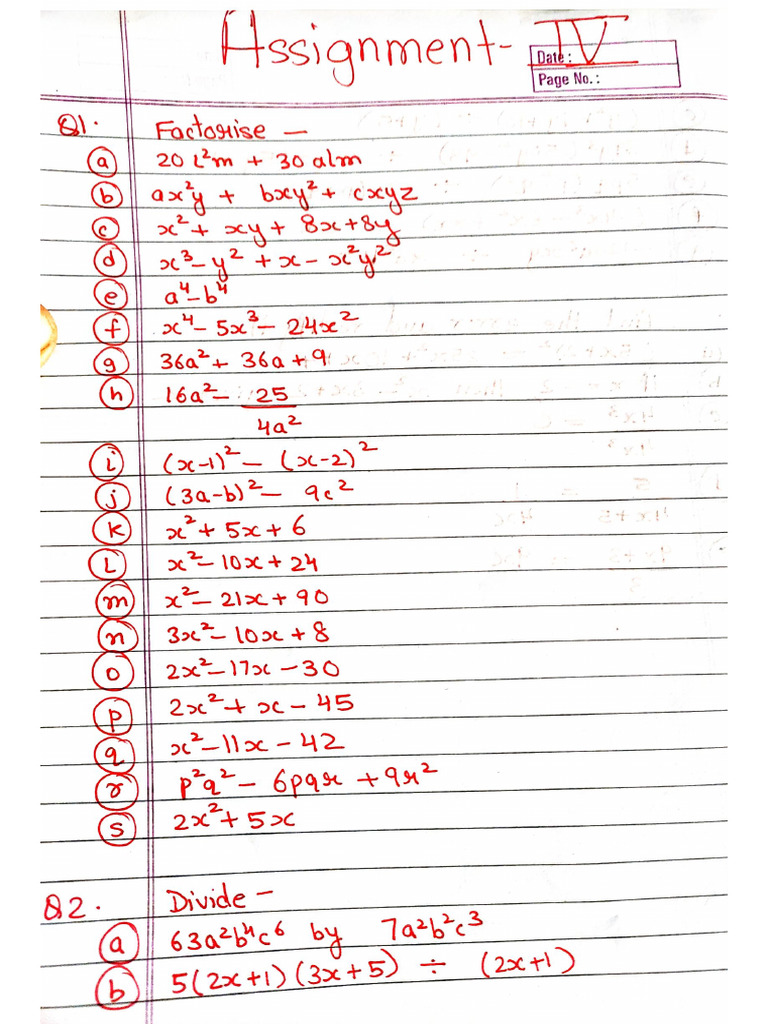 Assignment- IV
Date :
Page No. :
Q1. Factorise —
(a) 20 l²m + 30 alm
(b) ax²y + bxy² + cxyz
(c) x² + xy + 8x + 8y
(d) x³ - y² + x - x²y²
(e) a⁴ - b⁴
(f) x⁴ - 5x³ - 24x²
(g) 36a² + 36a + 9
(h) 16a² - 25
4a²
(i) (x-1)² - (x-2)²
(j) (3a-b)² - 9c²
(k) x² + 5x + 6
(L) x² - 10x + 24
(m) x² - 21x + 90
(n) 3x² - 10x + 8
(o) 2x² - 17x - 30
(p) 2x² + x - 45
(q) x² - 11x - 42
(r) p²q² - 6pqr + 9r²
(s) 2x² + 5x
Q2. Divide -
(a) 63a²b⁴c⁶ by 7a²b²c³
(b) 5(2x+1)(3x+5) ÷ (2x+1)